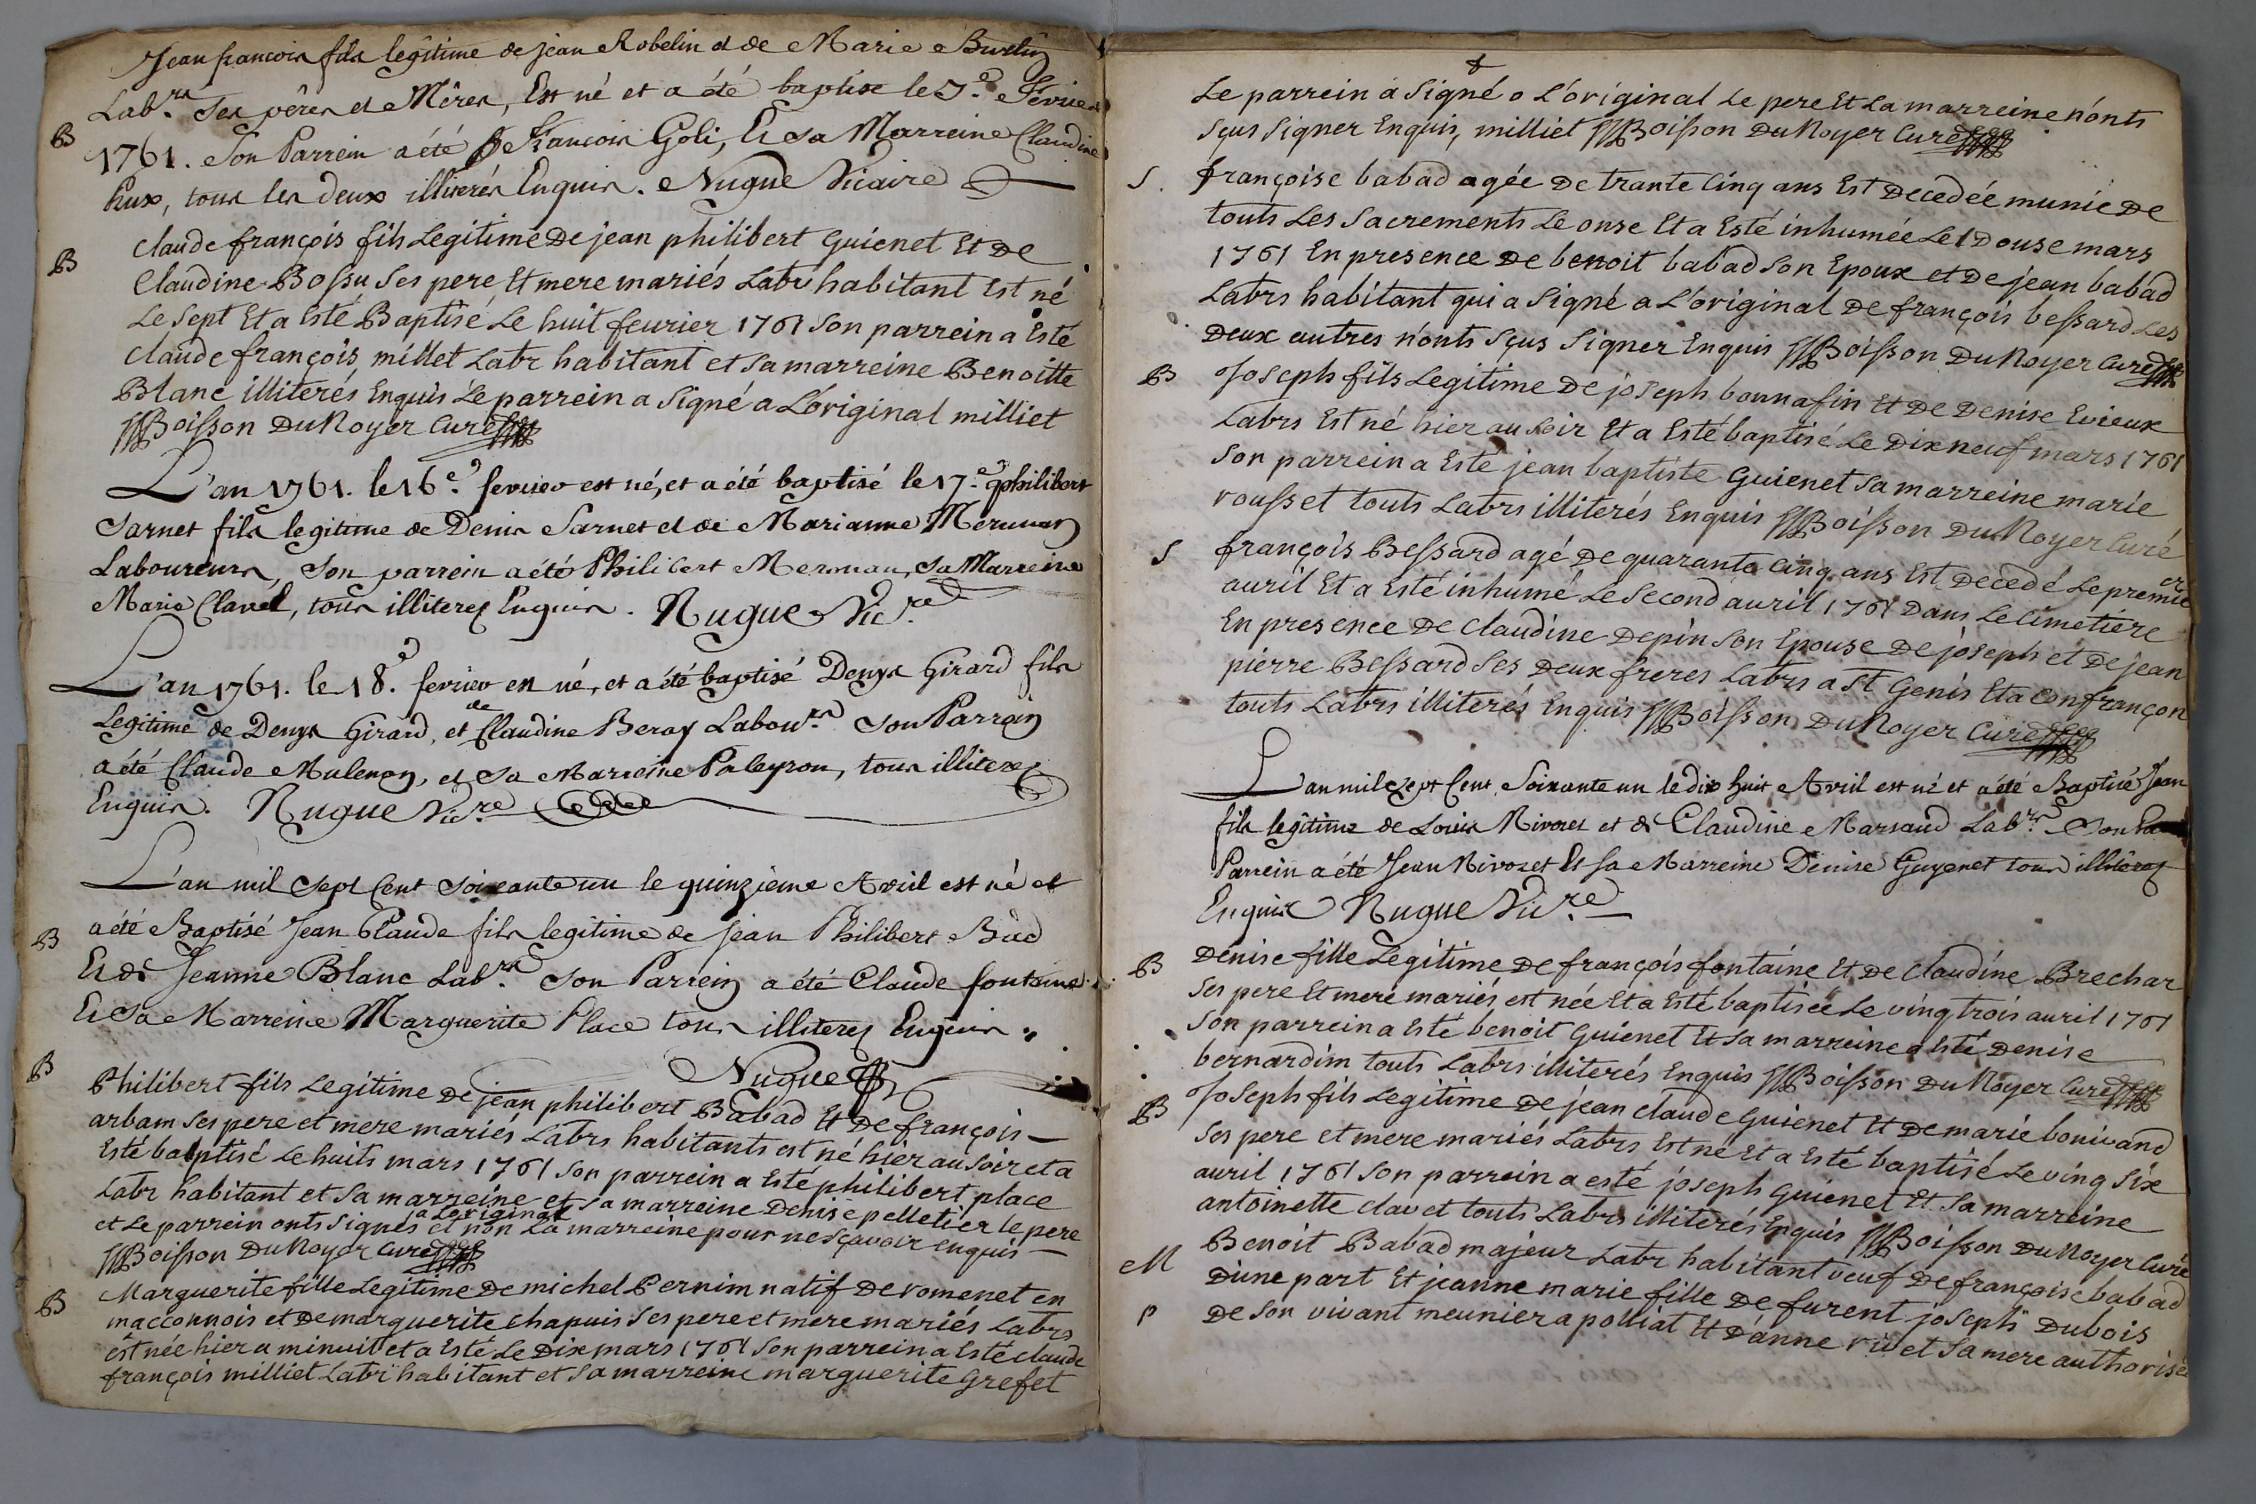 Jean francois fils legitime de jean Robelin et de Marie Burtin
Labrs. Ses pères et Mères, Est né et a été baptise le 7e. Fevrier
B
1761. Son Parrein a été françois Goli, Et sa Marreine Claudine
hux, tous les deux illiterés Enquis. Nugue Vicaire
claude françois fils Legitime De jean philibert Guienet Et De
B
Claudine Bossu Ses pere Et mere mariés Labrs habitant Est né
Le Sept Et a Esté Baptisé Le huit feurier 1761 Son parrein a Esté
claude françois millet Labr habitant et Sa marreine Benoitte
Blanc illiterés Enquis Le parrein a Signé a L'original milliet
Boisson DuNoyer Curé
L'an 1761. le 16e. fevrier est né, et a été baptisé le 17e. philibert
Sarnet fils legitime de Denis Sarnet et de Marianne Merman
Laboureurs, Son parrein a été Philibert Merman, Sa Marreine
Marie Clavel, tous illiterez Enquis. Nugue Vicre
L'an 1761. le 18e. fevrier en né, et a été baptisé Denys Girard fils
Legitime de Denys Girard, et de Claudine Beray Labourrs Son Parrein
a été Claude Mulenon, et Sa Marreine Paleyron, tous illiterez
Enquis. Nugue Vicre
L'an mil Sept Cent Soixante un le quinzieme Avril est né et
a été Baptisé Jean Claude fils legitime de Jean Philibert Bad
B
Et de Jeanne Blanc Labrs. Son Parrein a été Claude fontaine
Et Sa Marreine Marguerite Place tous illiterez Enquis.
Nugue
B
Philibert fils Legitime De jean philibert Babad Et De françois
arbam Ses pere et mere mariés Labrs habitants est né hier au Soir et a
Esté baptisé Le huits mars 1761 Son parrein a Esté philibert place
Labr habitant et Sa marreine et Sa marreine Denise pelletier Le pere
et Le parrein onts Signés a Loriginal et non La marreine pour ne Sçavoir enquis
Boisson DuNoyer Curé
Marguerite fille Legitime De michel Pernim natif De romenet en
B
macconnois et De marguerite chapuis Ses pere et mere mariés Labrs
est née hier a minuit et a Esté Le Dix mars 1761 Son parrein a Esté claude
françois milliet Labr habitant et Sa marreine marguerite Grefet
Le parrein a Signé a L'original Le pere Et La marreine n'onts
Sçus Signer Enquis, milliet Boisson DuNoyer Curé
S. françoise babad agée De trante Cinq ans Est Decedée munie De
touts Les Sacrements Le onse Et a Esté inhumée Le Douse mars
1761 En presence De benoit babad Son Epoux et De jean babad
Labrs habitant qui a Signé a L'original De françois bessard Les
Deux autres n'onts Sçus Signer Enquis Boisson DuNoyer Curé
B Joseph fils Legitime De joseph bonnafin Et De Denise Evieux
Labrs Est né hier au Soir Et a Esté baptisé Le Dix neuf mars 1761
Son parrein a Esté jean baptiste Guienet Sa marreine marie
rousset touts Labrs illiterés Enquis Boisson DuNoyer Curé
S françois Bessard agé De quarante Cinq ans Est Decedé Le premier
auril Et a Esté inhumé Le Second auril 1761 Dans Le Cimetiere
En presence De claudine Depin Son Epouse De joseph et De jean
pierre Bessard Ses Deux freres Labrs a St Genis Et a Confrançon
touts Labrs illiterés Enquis Boisson DuNoyer Curé
L'an mil Sept Cent Soixante un le dix huit Avril est né et a été Baptisé Jean
fils legitime de Louis Rivoret et de Claudine Marsaud Labrs. Son
Parrein a été Jean Rivoret Et Sa Marreine Denise Guyenet tous illiterez
Enquis Nugue Vicre
B Denise fille Legitime De françois fontaine Et De Claudine Brechar
Ses pere Et mere mariés est née Et a Esté baptisée Le vingtrois auril 1761
Son parrein a Esté benoit Guienet Et Sa marreine a Esté Denise
bernardim touts Labrs illiterés Enquis Boisson DuNoyer Curé
B Joseph fils Legitime De jean claude Guienet Et De marie bonivand
Ses pere et mere mariés Labrs Est né Et a Esté baptisé Le ving Six
auril 1761 Son parrein a esté joseph Guienet Et Sa marreine
antoinette clavet touts Labrs illiterés Enquis Boisson DuNoyer Curé
M Benoit Babad majeur Labr habitant veuf De françoise babad
D'une part Et jeanne marie fille De furent joseph Dubois
P De Son vivant meunier a polliat Et D'anne rivet Sa mere authorisée